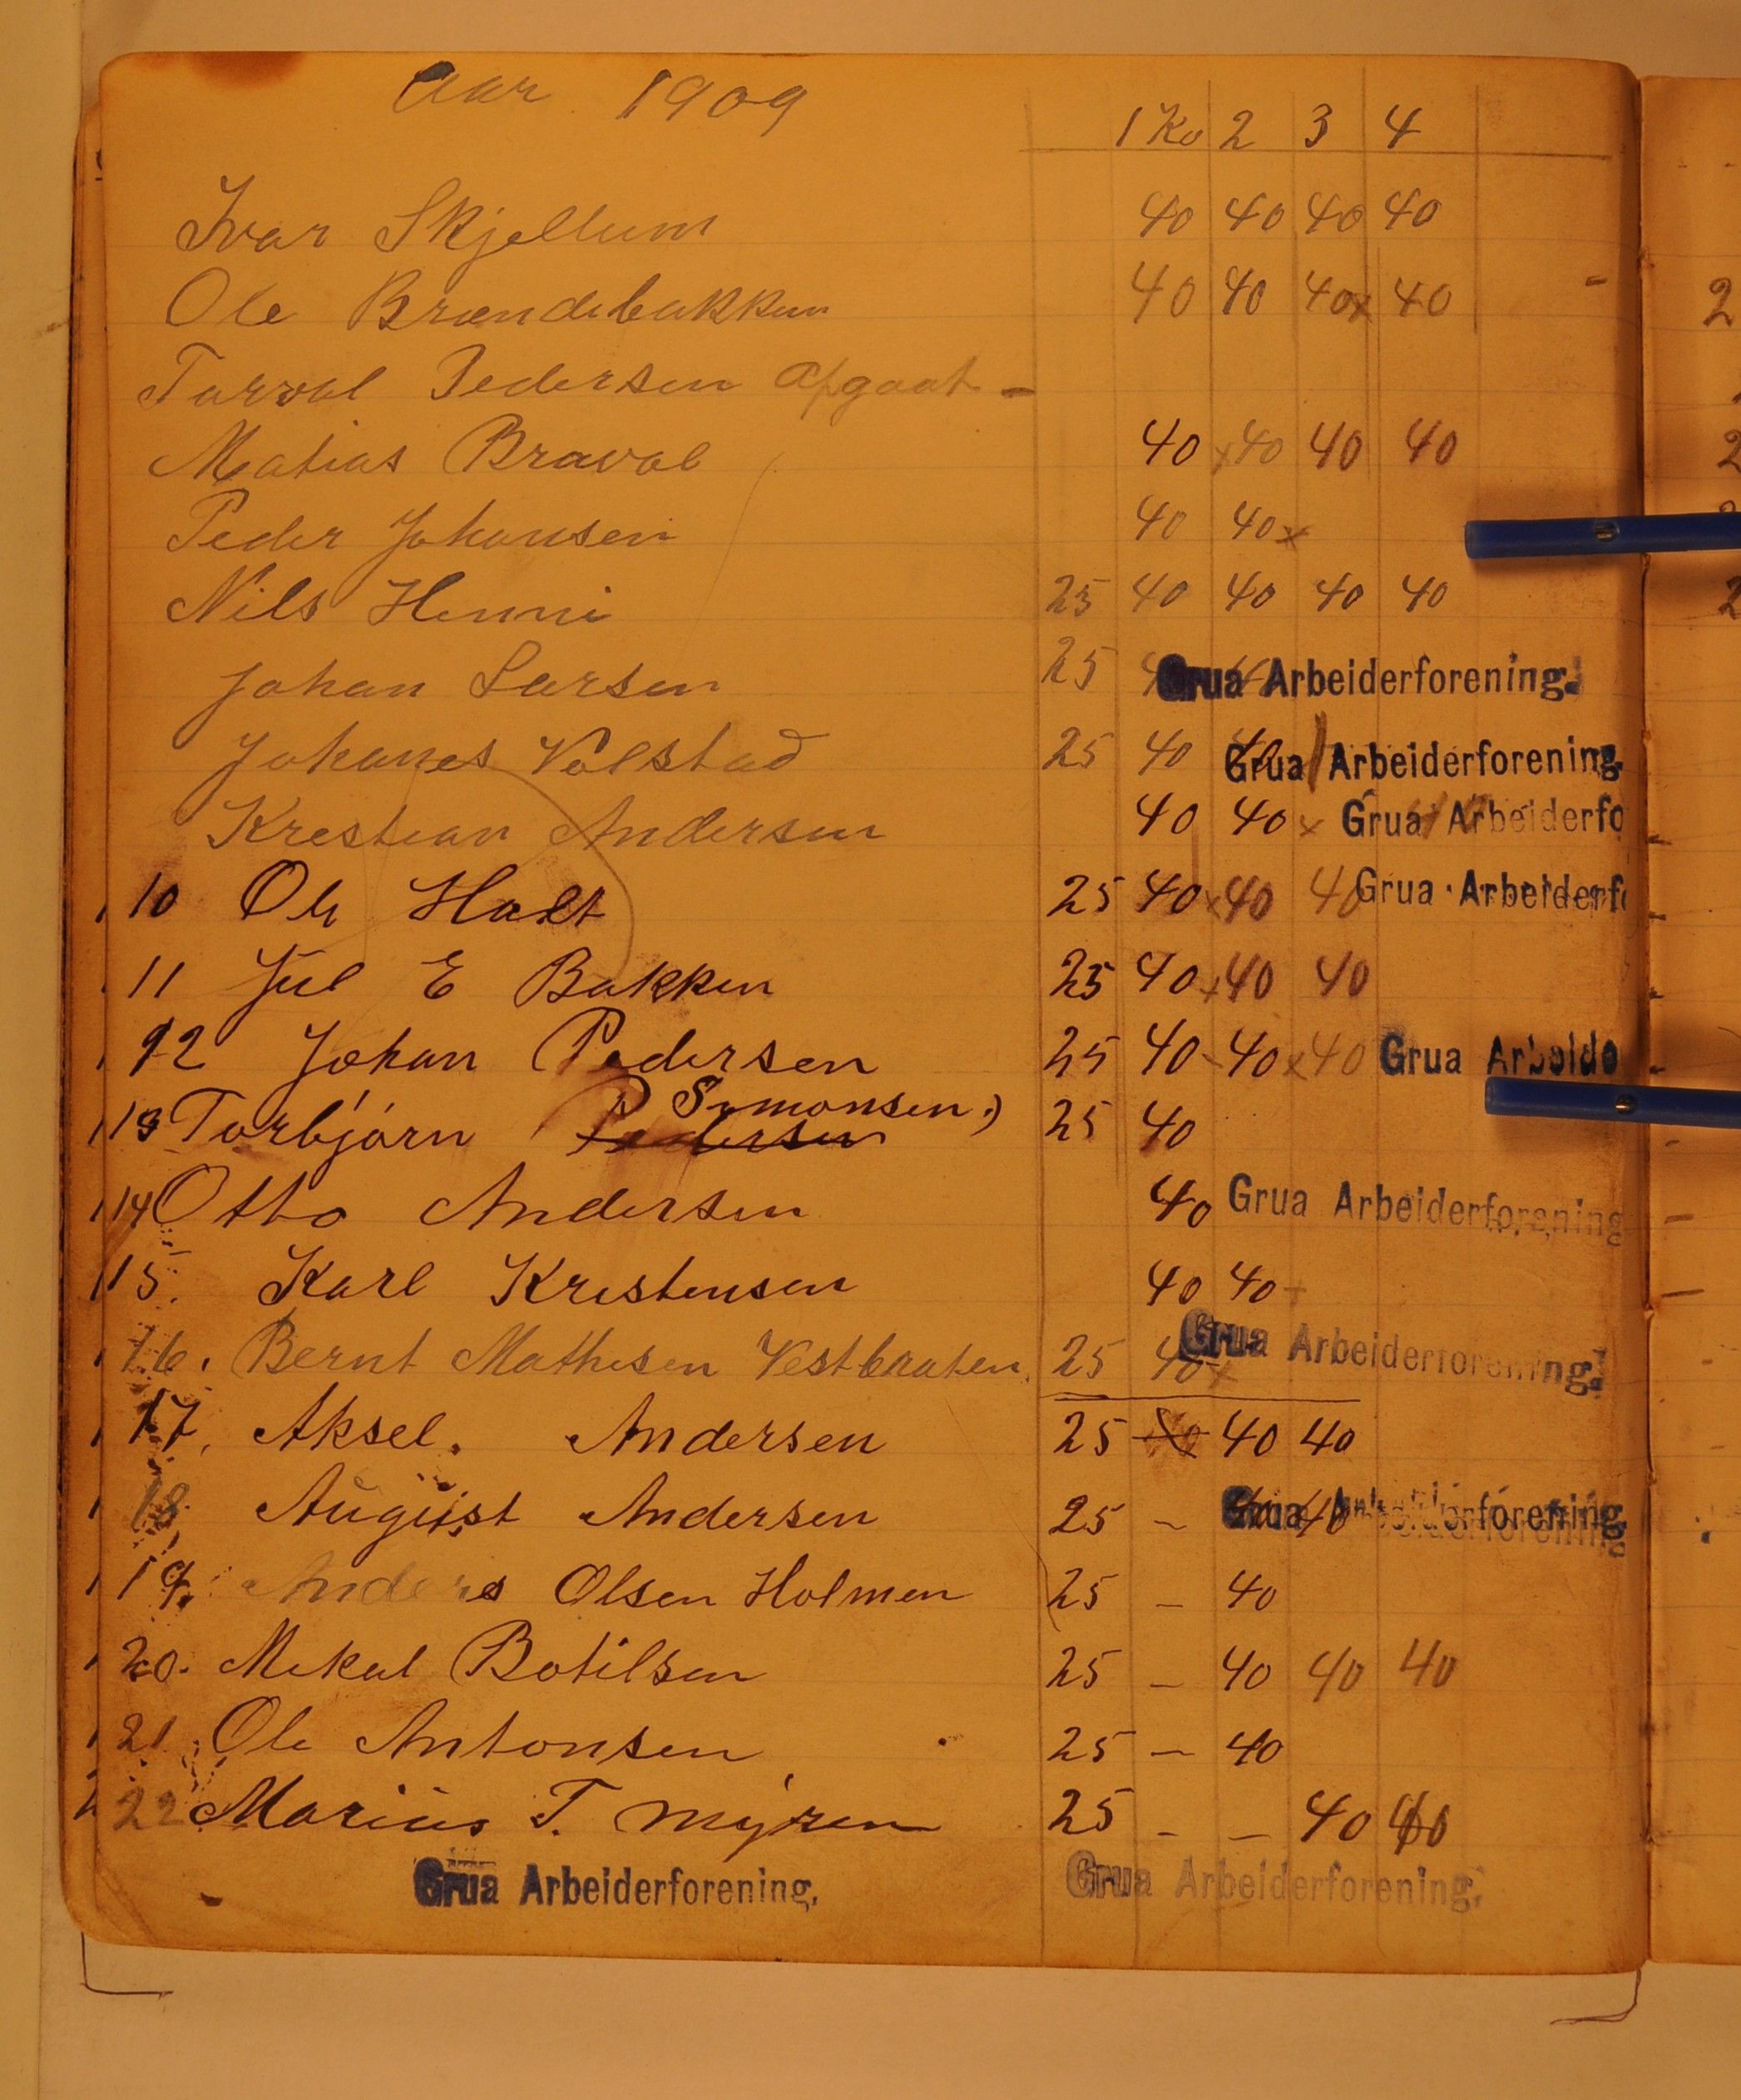 Aar 1909
1 Kv 2 3 4
Ivar Skjellum 40 40 40 40
Ole Brændebakken 40 40 40x 40
Torval Pedersen afgaat -
Matias Braval 40 x40 40 40
Peder Johansen 40 40x
Nils Henni 25 40 40 40 40
Johan Larsen 25 Grua Arbeiderforening.
Johanes Volstad 25 40 40 Grua Arbeiderforening.
Krestian Andersen 40 40 x Grua Arbeiderfo
10 Ole Holt 25 40 x40 40 Grua Arbeiderf
11 Jul E Bakken 25 40 x40 40
12 Johan Pedersen 25 40 - 40 x40 Grua Arbeide
P Simonsen.)
13 Torbjørn Pedersen 25 40
14 Otto Andersen 40 Grua Arbeiderforening
15. Karl Kristensen 40 40
16. Bernt Mathisen Vestbraaten. 25 40x Grua Arbeiderforening.
17. Aksel. Andersen 25 40 40 40
18 August Andersen 25 - 40 40 Grua Arbeiderforening.
19. Anders Olsen Holmen 25 - 40
20. Mekal Botilsen 25 - 40 40 40
21 Ole Antonsen 25 - 40
22 Marius T. Myren 25 - - 40 40
Grua Arbeiderforening. Grua Arbeiderforening.
2
2
2